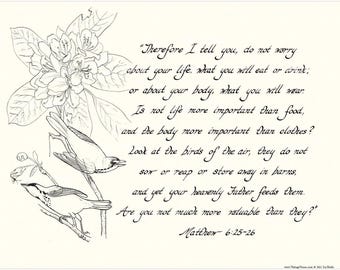 "Therefore I tell you, do not worry
about your life, what you will eat or drink;
or about your body, what you will wear.
Is not life more important than food,
and the body more important than clothes?
Look at the birds of the air; they do not
sow or reap or store away in barns,
and yet your heavenly Father feeds them.
Are you not much more valuable than they?"
Matthew 6:25-26